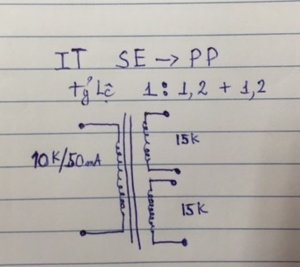 IT SE → PP
tỷ lệ 1 : 1,2 + 1,2
15K
10K/50mA
15K